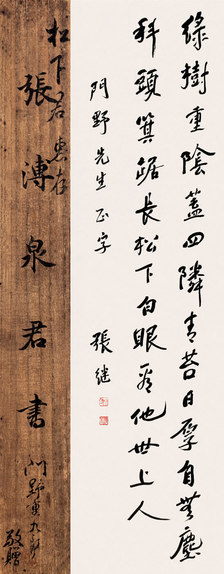 綠樹重陰蓋四隣青苔日厚自無塵
科頭箕踞長松下白眼看他世上人
門野先生正字
張继
松下君惠存
張溥泉君書
門野重九郎
敬贈